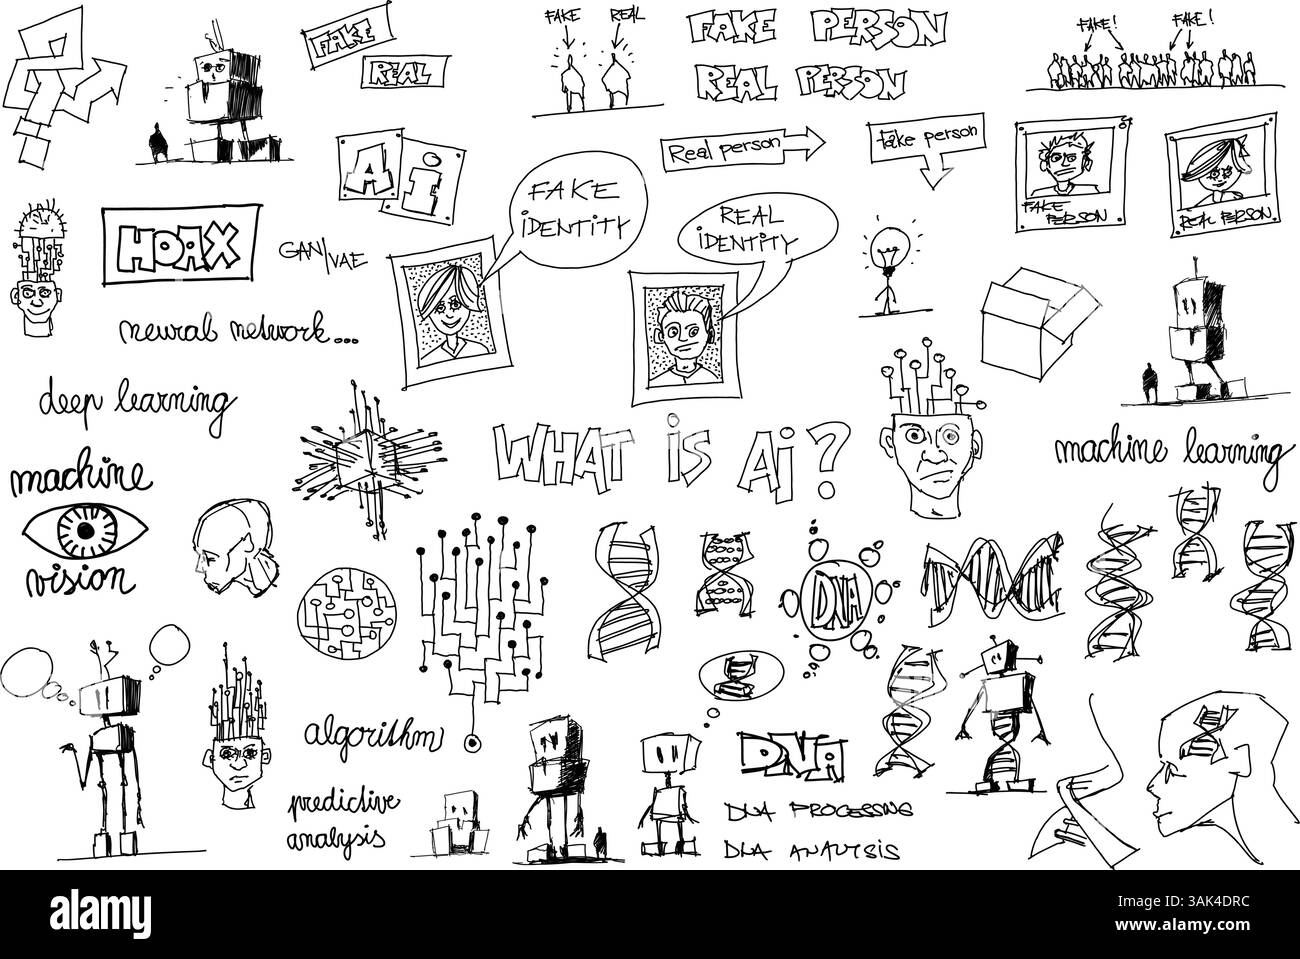 FAKE
REAL
FAKE REAL
FAKE PERSON
REAL PERSON
FAKE! FAKE!
Ai
Real person
fake person
FAKE PERSON
REAL PERSON
FAKE IDENTITY
REAL IDENTITY
HOAX
GAN/VAE
neural network...
deep learning
WHAT iS Ai?
machine learning
machine
vision
DNA
algorithm
predictive
analysis
DNA
DNA PROCESSING
DNA ANALYSIS
alamy
Image ID: 3AK4DRC
www.alamy.com